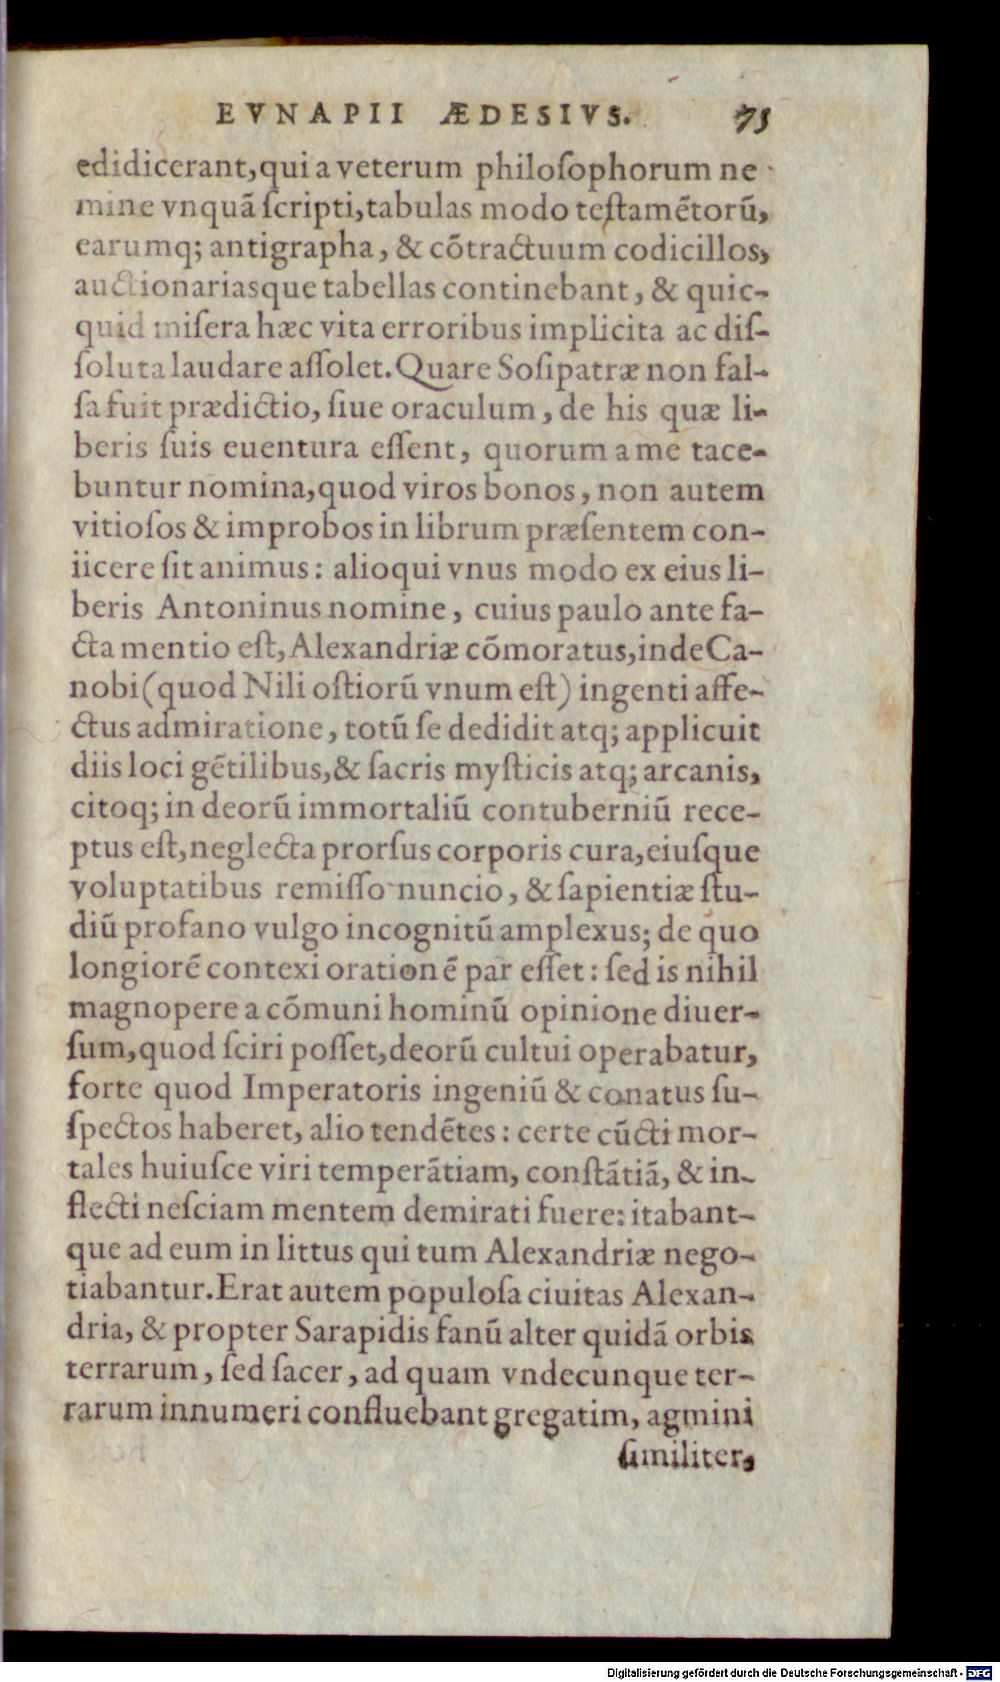 EVNAPII ÆDESIVS. 75
edidicerant, qui a veterum philoſophorum ne
mine vnquã ſcripti, tabulas modo teſtamẽtorũ,
earumq; antigrapha, & cõtractuum codicillos,
auctionariasque tabellas continebant, & quic-
quid miſera hæc vita erroribus implicita ac diſ-
ſoluta laudare aſſolet. Quare Soſipatræ non fal-
ſa fuit prædictio, ſiue oraculum, de his quæ li-
beris ſuis euentura eſſent, quorum a me tace-
buntur nomina, quod viros bonos, non autem
vitioſos & improbos in librum præſentem con-
iicere ſit animus: alioqui vnus modo ex eius li-
beris Antoninus nomine, cuius paulo ante fa-
cta mentio eſt, Alexandriæ cõmoratus, inde Ca-
nobi (quod Nili oſtiorũ vnum eſt) ingenti affe-
ctus admiratione, totũ ſe dedidit atq; applicuit
diis loci gẽtilibus, & ſacris myſticis atq; arcanis,
citoq; in deorũ immortaliũ contuberniũ rece-
ptus eſt, neglecta prorſus corporis cura, eiuſque
voluptatibus remiſſo nuncio, & ſapientiæ ſtu-
diũ profano vulgo incognitũ amplexus; de quo
longiorẽ contexi orationẽ par eſſet: ſed is nihil
magnopere a cõmuni hominũ opinione diuer-
ſum, quod ſciri poſſet, deorũ cultui operabatur,
forte quod Imperatoris ingeniũ & conatus ſu-
ſpectos haberet, alio tendẽtes: certe cũcti mor-
tales huiuſce viri temperãtiam, conſtãtiã, & in-
flecti neſciam mentem demirati fuere: itabant-
que ad eum in littus qui tum Alexandriæ nego-
tiabantur. Erat autem populoſa ciuitas Alexan-
dria, & propter Sarapidis fanũ alter quidã orbis
terrarum, ſed ſacer, ad quam vndecunque ter-
rarum innumeri confluebant gregatim, agmini
ſimiliter,
Digitalisierung gefördert durch die Deutsche Forschungsgemeinschaft - DFG